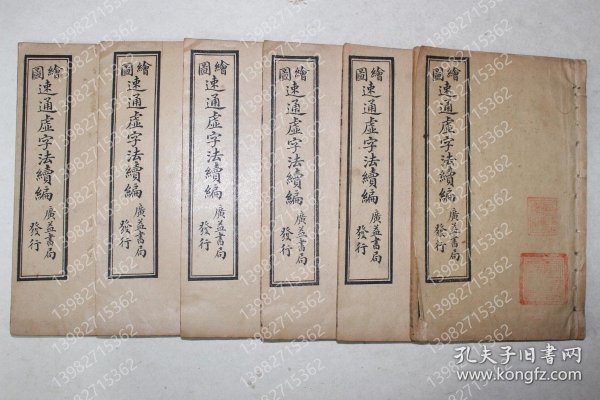 繪圖
速通虛字法續編
廣益書局
發行
繪圖
速通虛字法續編
廣益書局
發行
繪圖
速通虛字法續編
廣益書局
發行
繪圖
速通虛字法續編
廣益書局
發行
繪圖
速通虛字法續編
廣益書局
發行
繪圖
速通虛字法續編
廣益書局
發行
13982715362
13982715362
13982715362
13982715362
13982715362
13982715362
13982715362
13982715362
13982715362
13982715362
13982715362
13982715362
孔夫子旧书网
www.kongfz.com